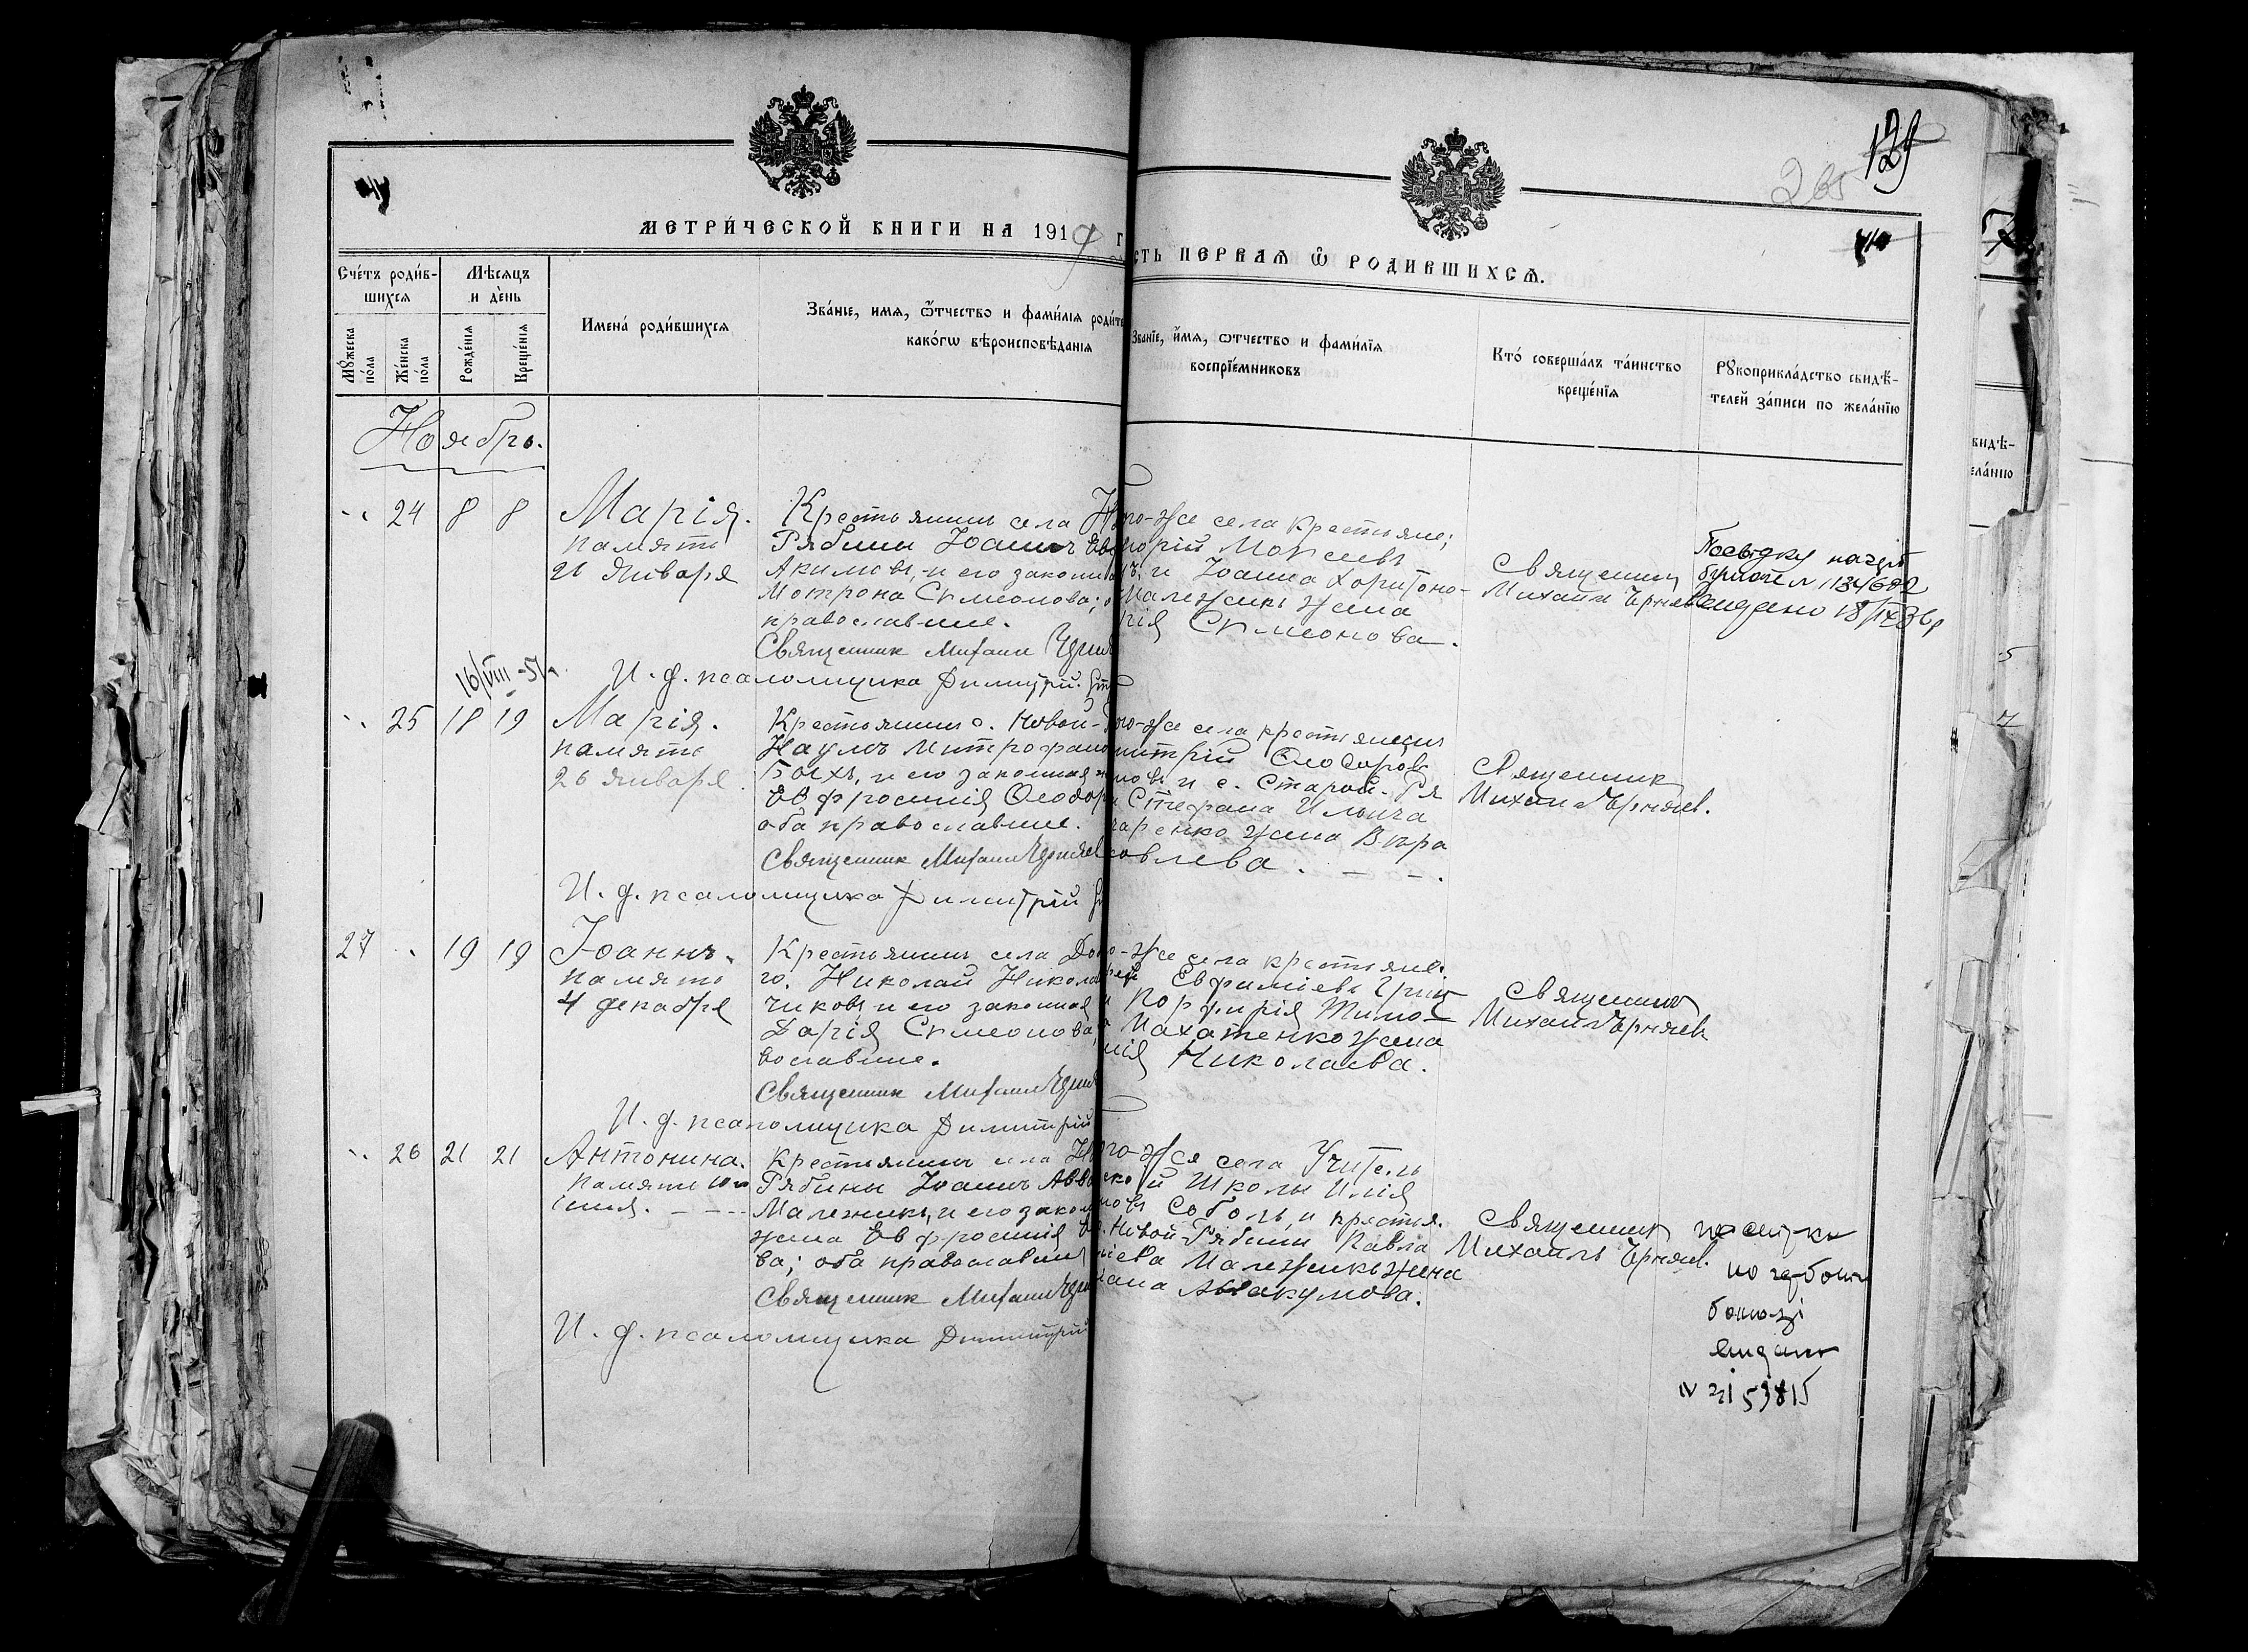 129
265
МЕТРИ́ЧЕСКОЙ КНИГИ НА 1919 Г
СТЬ ПЕРВАЯ Ѿ РОДИВШИХСЯ.
Сче́тъ роди́в-
шихся
Мѣсяцъ
и де́нь
Мꙋ́жеска
по́ла
Же́нска
по́ла
Рожде́нія
Креще́нія
Имена́ роди́вшихся
Зва́ніе, имя, ѻ҆тчество и фами́лія роди́те
како́гѡ вѣроисповѣданія
Званіе, и́мя, ѻтчество и фами́лія
воспріе́мниковъ
Кто́ соверша́лъ та́инство
креще́нія
Рꙋкоприкла́дство свидѣ-
телей за́писи по жела́нію
Ноябрь.
24 8 8
Марія.
память
26 Января
Крестьянинъ села Н
Рябины Іоаннъ Ев
Акимовъ, и его законн
Мотрона Симеонова; о
православные.
Священникъ Михаилъ Черня
И. д. псаломщика Димитрій
го-же села крестьяне;
горій Моисеевъ
и Іоанна Харитоно-
Малежикъ жена
рія Симеонова.
Священникъ
Михаилъ Черняев
№ 1134682
видано 18/IX
16/VIII-51
25 18 19
Марія.
память
26 Января.
Крестьянинъ с. Новой-
Наумъ Митрофано
и его законная
Евфросинія Ѳеодор
оба православные.
Священникъ Михаилъ Черняев
И. д. псаломщика Димитрій
го-же села крестьянинъ
митрій Ѳеодоров
новъ и с. Старой-Ря
Стефана Ильича
чаренко жена Вѣра
ковлева.
Священникъ
Михаилъ Черняев.
27 19 19
Іоаннъ.
память
4 декабря
Крестьянинъ села До
го. Николай Никола
чиковъ и его законная
Дарія Симеонова,
вославные.
Священникъ Михаилъ Черня
И. д. псаломщика Димитрій
го-же села крестьяне:
рей Евфиміевъ Гриц
Порфирія Тимо-
Махатенко жена
нія Николаева.
Священникъ
Михаилъ Черняевъ
26 21 21
Антонина.
Память
Крестьянинъ села Но
Рябины Іоаннъ Авва
Малежикъ, и его закон
жена Евфросинія
ва; оба православны
Священникъ Михаилъ Черн
И. д. псаломщика Димитрій
го-же села Учитель
ской Школы Илія
новъ Соболь, и крестья.
с. Новой-Рябины Павла
іева Малежикъ жена
Аввакумова.
Священникъ
Михаилъ Черняев.
видано